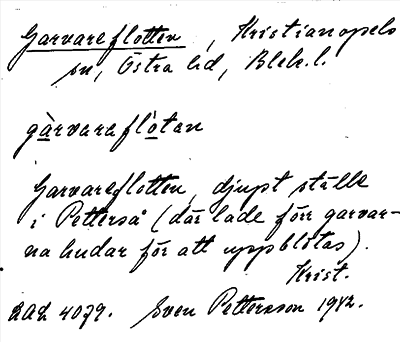 Garvareflotten, Kristianopels
sn, Östra hd, Blek.l.
gàrvareflòtan
Garvareflotten, djupt ställe
i Petterså (där lade förr garvar-
na hudar för att uppblötas).
Krist.
4079. Sven Pettersson 1942.